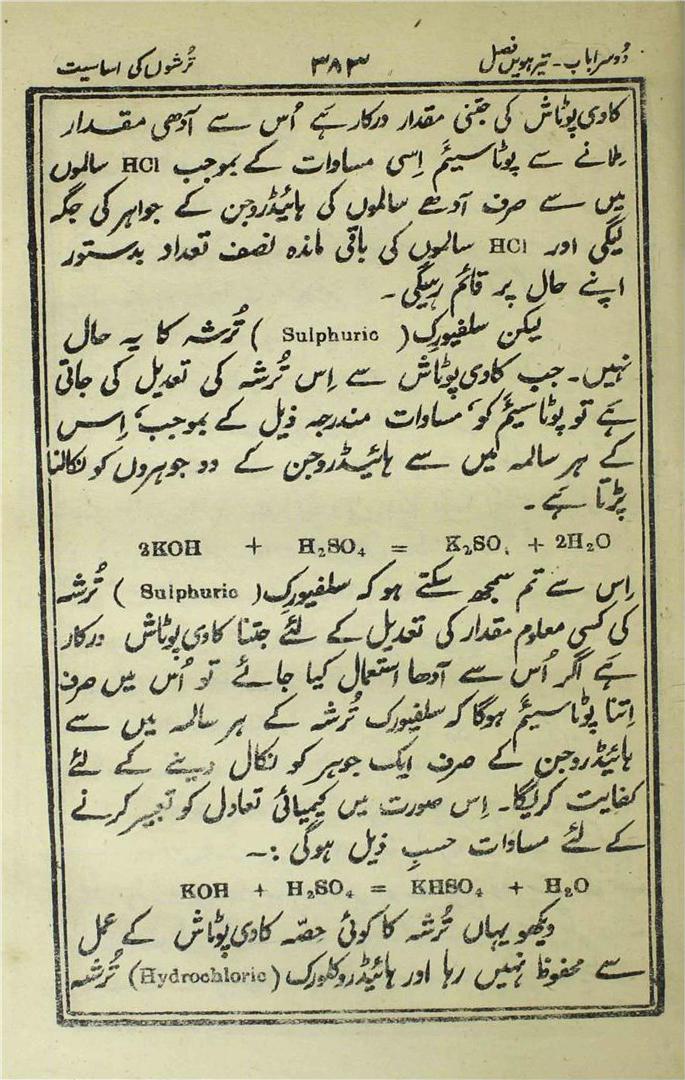 دُوسرا باب۔ تیرہویں فصل ۳۸۳ تُرشوں کی اساسیت
کاوی پوٹاش کی جتنی مقدار درکار ہے اُس سے آدھی مقدار
ملانے سے پوٹاسیئم اِسی مساوات کے بموجب HCl سالموں
میں سے صرف آدھے سالموں کی ہائیڈروجن کے جواہر کی جگہ
لیگی اور HCl سالموں کی باقی ماندہ نصف تعداد بدستور
اپنے حال پر قائم رہیگی۔
لیکن سلفیورک (Sulphuric) تُرشہ کا یہ حال
نہیں۔ جب کاوی پوٹاش سے اِس تُرشہ کی تعدیل کی جاتی
ہے تو پوٹاسیئم کو، مساوات مندرجہ ذیل کے بموجب، اِس
کے ہر سالمہ میں سے ہائیڈروجن کے دو جوہروں کو نکالنا
پڑتا ہے۔
2KOH + H₂SO₄ = K₂SO₄ + 2H₂O
اِس سے تم سمجھ سکتے ہو کہ سلفیورک (Sulphuric) تُرشہ
کی کسی معلوم مقدار کی تعدیل کے لئے جتنا کاوی پوٹاش درکار
ہے اگر اُس سے آدھا استعمال کیا جائے تو اُس میں صرف
اِتنا پوٹاسیئم ہوگا کہ سلفیورک تُرشہ کے ہر سالمہ میں سے
ہائیڈروجن کے صرف ایک جوہر کو نکال دینے کے لئے
کفایت کریگا۔ اِس صورت میں کیمیائی تعادل کو تعبیر کرنے
کے لئے مساوات حسبِ ذیل ہوگی :۔
KOH + H₂SO₄ = KHSO₄ + H₂O
دیکھو یہاں تُرشہ کا کوئی حِصّہ کاوی پوٹاش کے عمل
سے محفوظ نہیں رہا اور ہائیڈروکلورک (Hydrochloric) تُرشہ